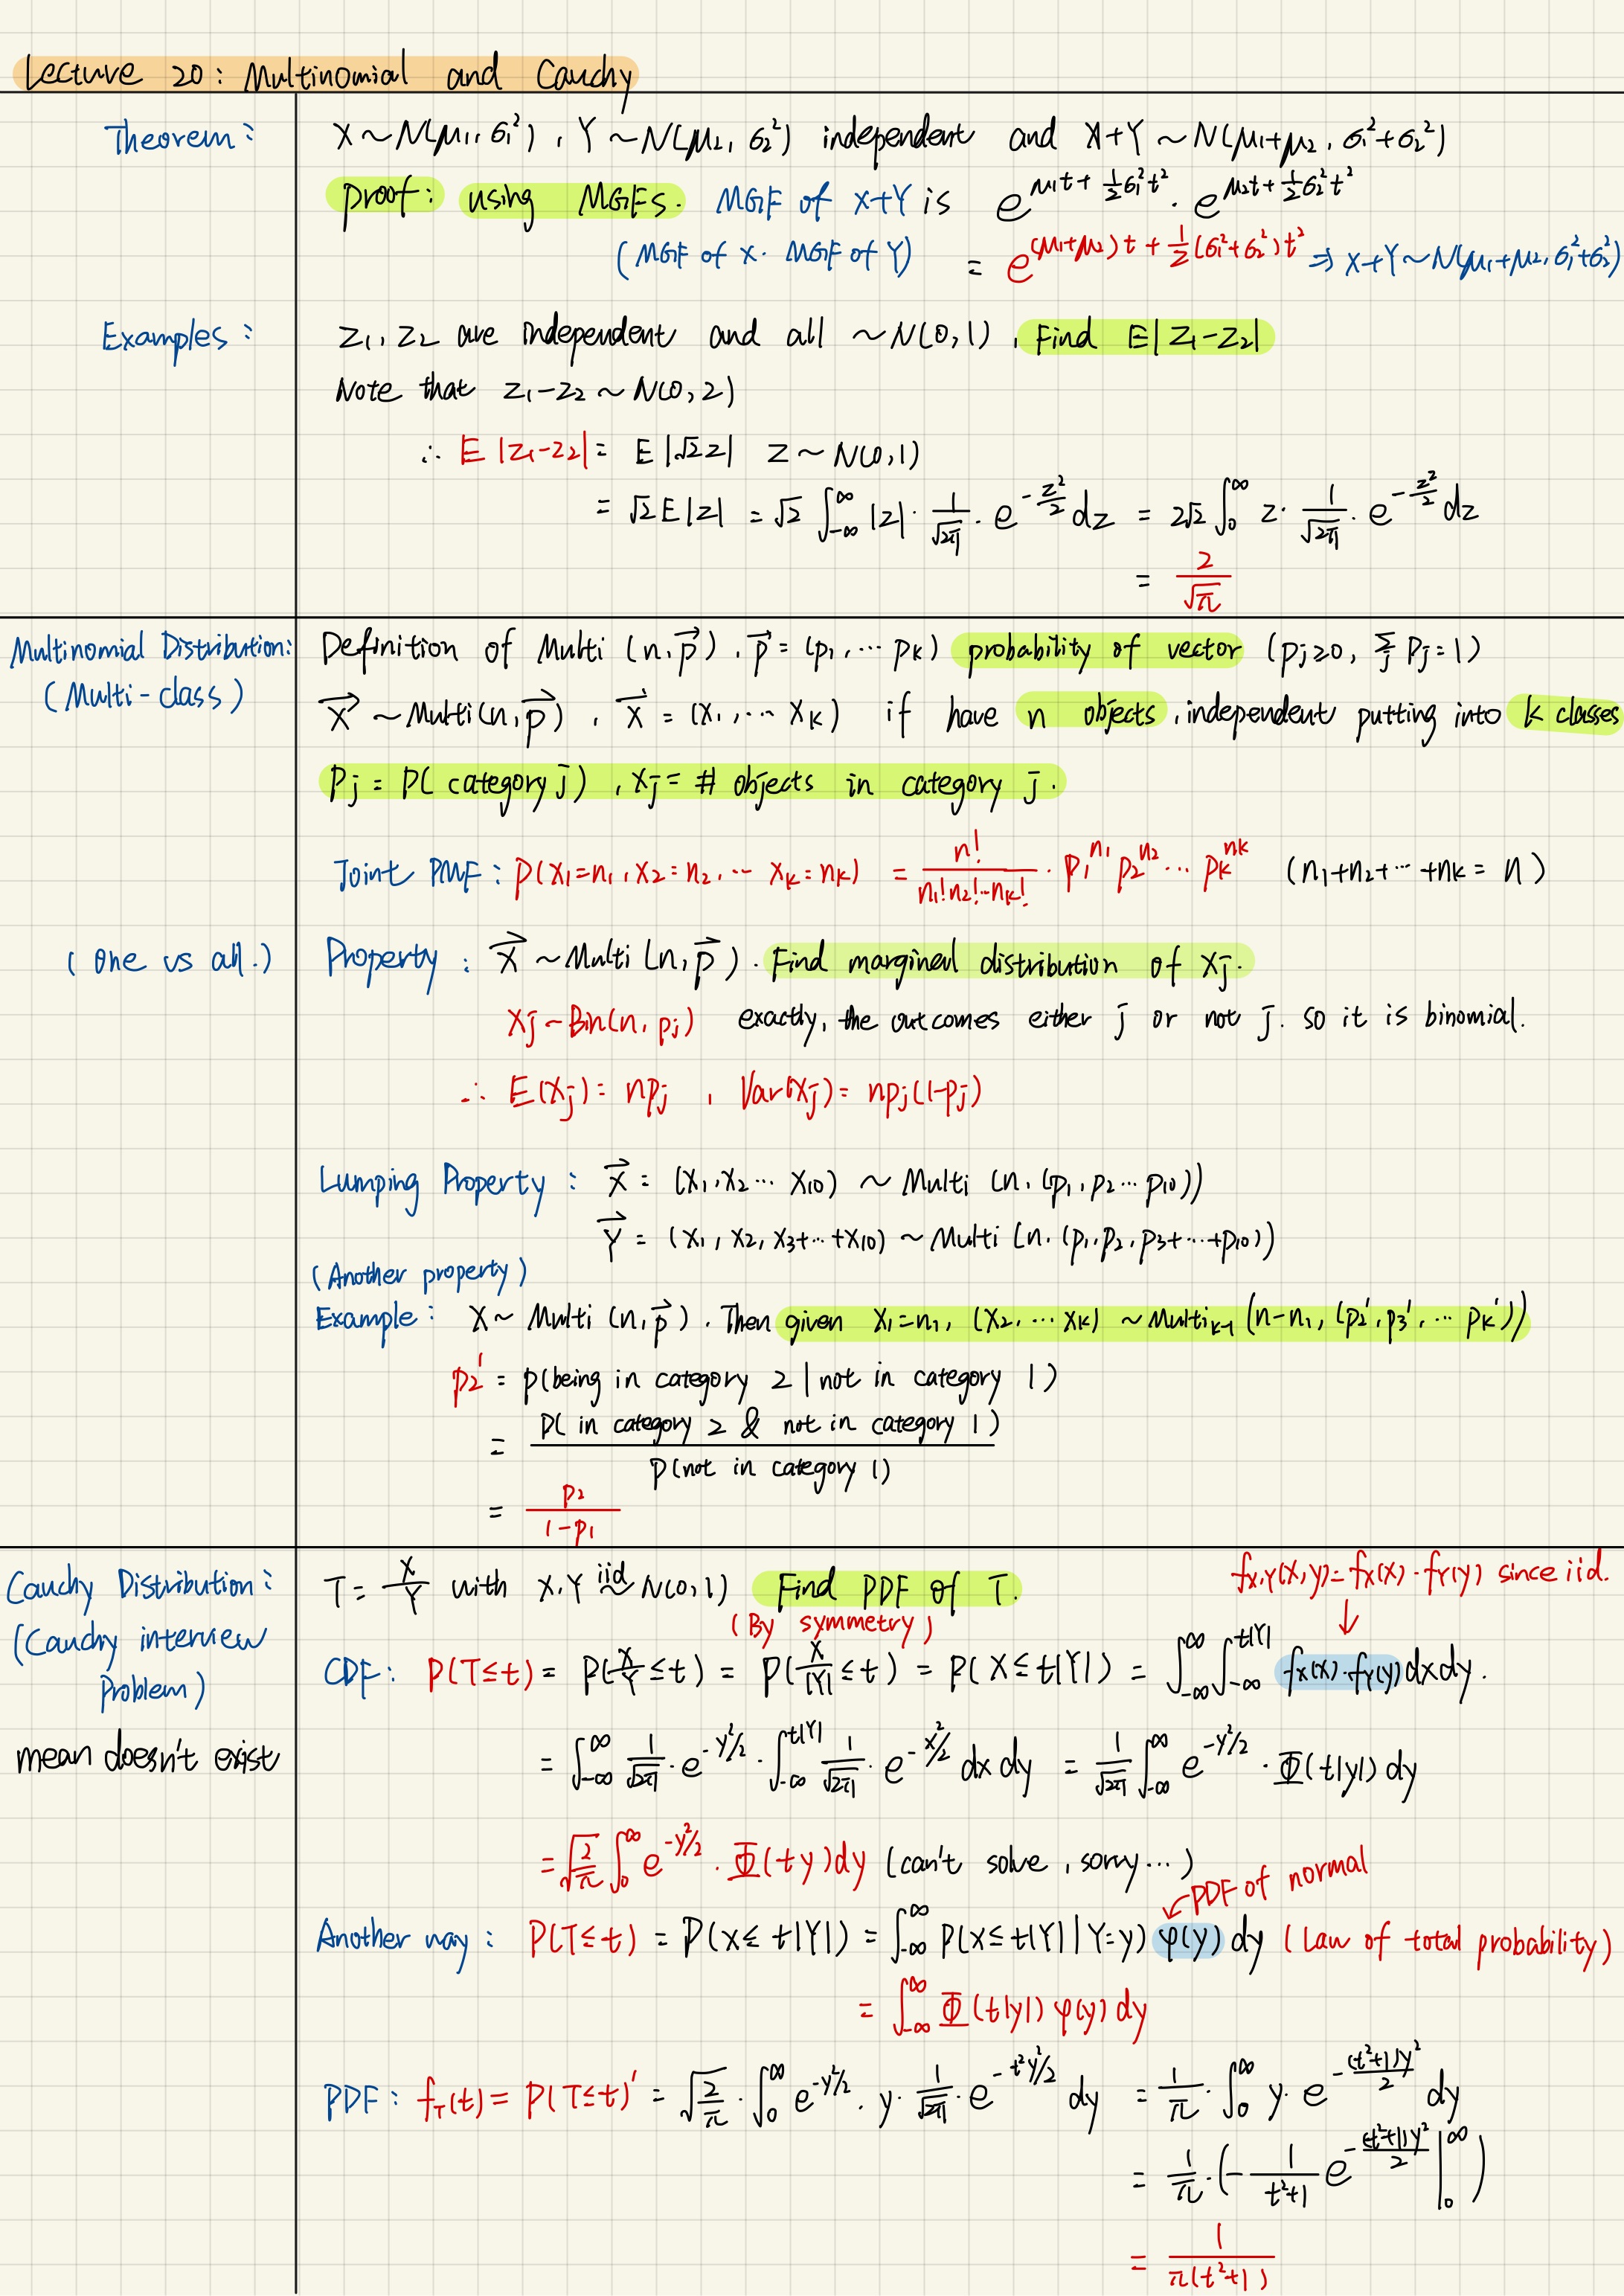 Lecture 20: Multinomial and Cauchy
Theorem: X ~ N(μ1, σ1²), Y ~ N(μ2, σ2²) independent and X+Y ~ N(μ1+μ2, σ1²+σ2²)
proof: using MGFs. MGF of X+Y is e^{μ1t + ½σ1²t²} · e^{μ2t + ½σ2²t²}
(MGF of X · MGF of Y) = e^{(μ1+μ2)t + ½(σ1²+σ2²)t²} ⇒ X+Y ~ N(μ1+μ2, σ1²+σ2²)
Examples: Z1, Z2 are independent and all ~ N(0,1), Find E|Z1-Z2|
Note that Z1-Z2 ~ N(0,2)
∴ E|Z1-Z2| = E|√2Z| Z ~ N(0,1)
= √2E|Z| = √2 ∫_{-∞}^{∞} |z| · 1/√2π · e^{-z²/2} dz = 2√2 ∫_0^∞ z · 1/√2π · e^{-z²/2} dz
= 2/√π
Multinomial Distribution: Definition of Multi (n, p⃗), p⃗ = (p1, ··· pk) probability of vector (pj≥0, Σ_j Pj=1)
(Multi-class) X⃗ ~ Multi(n, p⃗), X⃗ = (X1, ··· Xk) if have n objects, independent putting into k classes
Pj = P(category j), Xj = # objects in category j.
Joint PMF: P(X1=n1, X2=n2, ··· Xk=nk) = n!/(n1!n2!···nk!) · P1^{n1} P2^{n2} ··· Pk^{nk} (n1+n2+···+nk = n)
(one vs all.) Property: X⃗ ~ Multi (n, p⃗). Find marginal distribution of Xj.
Xj ~ Bin(n, pj) exactly, the outcomes either j or not j. so it is binomial.
∴ E(Xj) = npj, Var(Xj) = npj(1-pj)
Lumping Property: X⃗ = (X1, X2 ··· X10) ~ Multi (n, (p1, p2 ··· p10))
Y⃗ = (X1, X2, X3+···+X10) ~ Multi (n, (p1, p2, p3+···+p10))
(Another property)
Example: X ~ Multi (n, p⃗). Then given X1=n1, (X2, ··· Xk) ~ Multi_{k-1} (n-n1, (p2', p3', ··· pk'))
p2' = p(being in category 2 | not in category 1)
= P(in category 2 & not in category 1) / P(not in category 1)
= p2/(1-p1)
fX,Y(X,y) = fX(x)·fY(y) since iid.
Cauchy Distribution: T = X/Y with X,Y iid ~ N(0,1) Find PDF of T.
(Cauchy interview Problem)
(By symmetry)
CDF: P(T≤t) = P(X/Y ≤t) = P(X/|Y| ≤t) = P(X≤t|Y|) = ∫_{-∞}^{∞} ∫_{-∞}^{t|Y|} fX(x)·fY(y) dxdy.
mean doesn't exist
= ∫_{-∞}^{∞} 1/√2π · e^{-y²/2} · ∫_{-∞}^{t|Y|} 1/√2π · e^{-x²/2} dx dy = 1/√2π ∫_{-∞}^{∞} e^{-y²/2} · Φ(t|y|) dy
= √(2/π) ∫_0^∞ e^{-y²/2} · Φ(ty) dy (can't solve, sorry···)
PDF of normal
Another way: P(T≤t) = P(X≤t|Y|) = ∫_{-∞}^{∞} P(X≤t|Y| | Y=y) φ(y) dy (Law of total probability)
= ∫_{-∞}^{∞} Φ(t|y|) φ(y) dy
PDF: f_T(t) = P(T≤t)' = √(2/π) · ∫_0^∞ e^{-y²/2} · y · 1/√2π · e^{-t²y²/2} dy = 1/π · ∫_0^∞ y · e^{-(t²+1)y²/2} dy
= 1/π · (-1/(t²+1) e^{-(t²+1)y²/2} |_0^∞)
= 1/(π(t²+1))